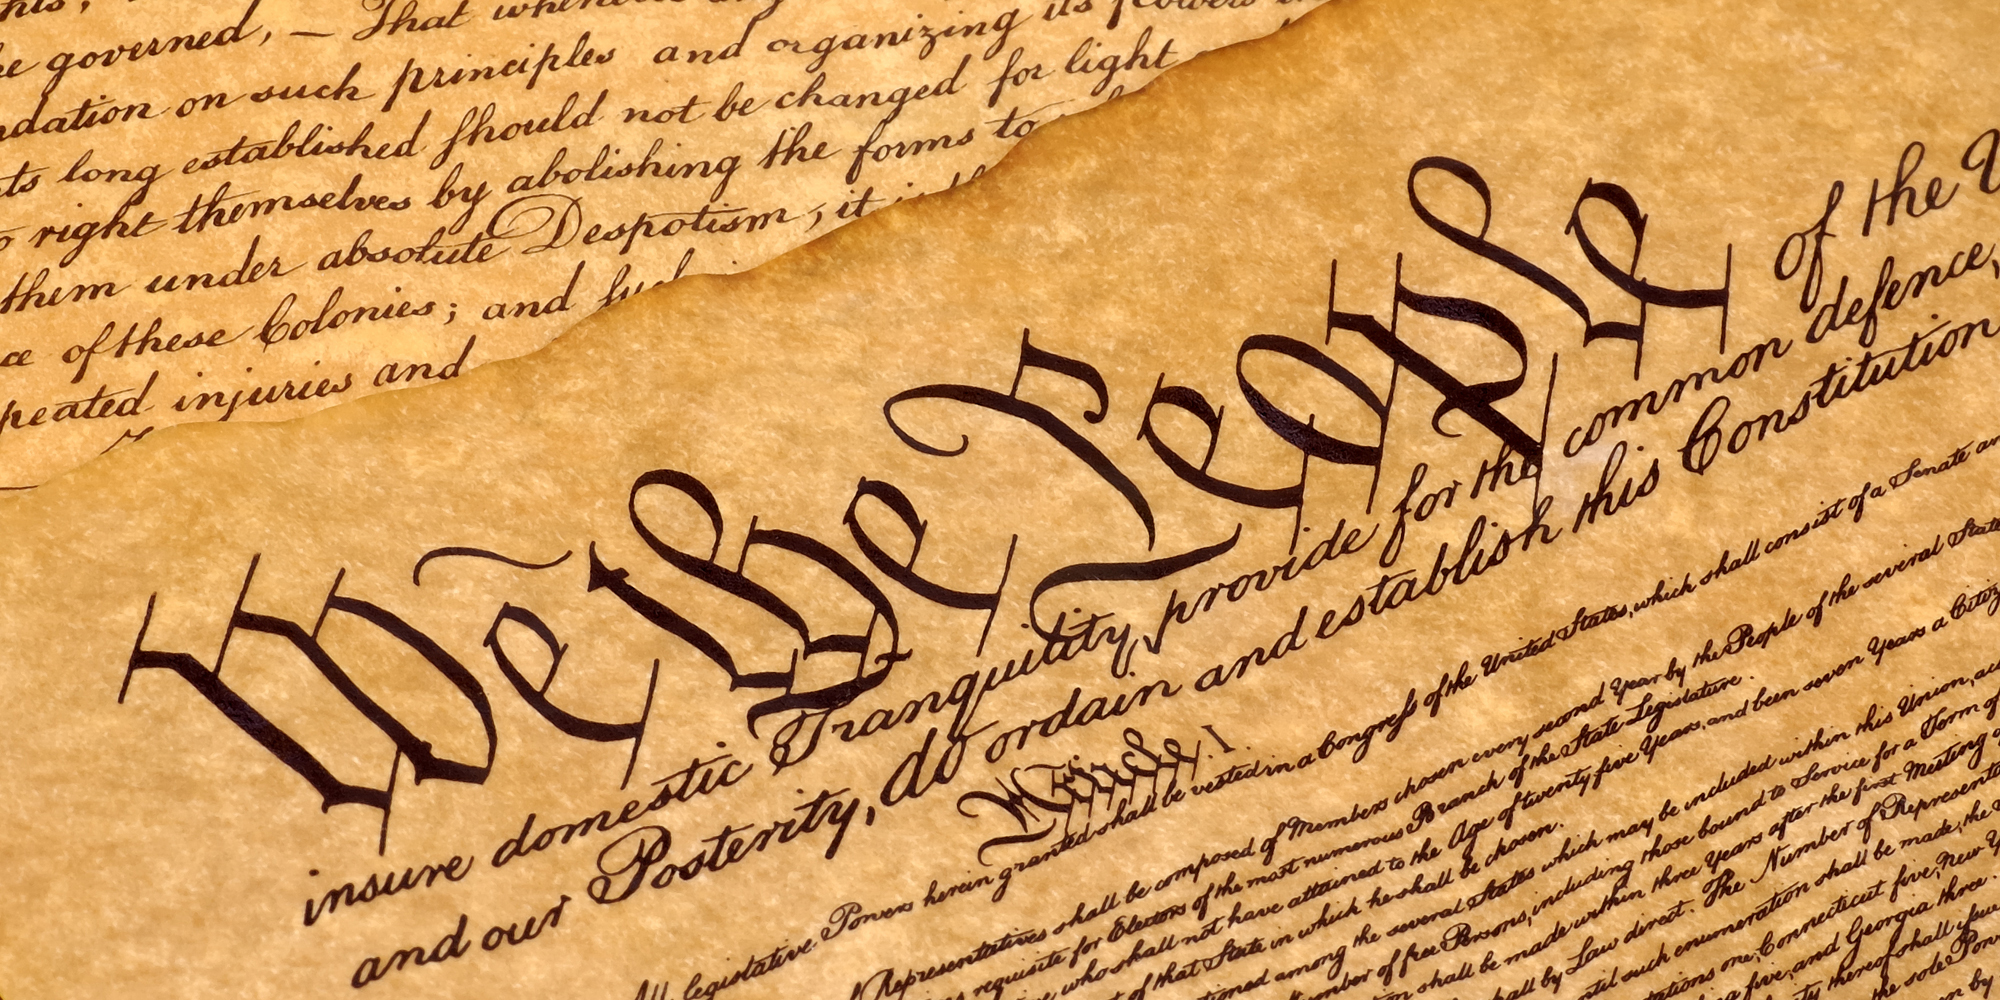 governed, — That
ndation on such principles and organizing its powers
ts long established should not be changed for light
right themselves by abolishing the forms to
them under absolute Despotism, it is
of these Colonies; and such
peated injuries and
We the People of the U
insure domestic Tranquility, provide for the common defence,
and our Posterity, do ordain and establish this Constitution
Article I.
All legislative Powers herein granted shall be vested in a Congress of the United States, which shall consist of a Senate an
Representatives shall be composed of Members chosen every second Year by the People of the several State
requisite for Electors of the most numerous Branch of the State Legislature.
who shall not have attained to the Age of twenty five Years, and been seven Years a Citiz
of that State in which he shall be chosen.
tioned among the several States which may be included within this Union, ac
umber of free Persons, including those bound to Service for a Term of
shall be made within three Years after the first Meeting o
hall by Law direct. The Number of Represent
ntil such enumeration shall be made, the
tations one, Connecticut five, New Y
five, and Georgia three.
thereof shall issue
the sole Pow
on by